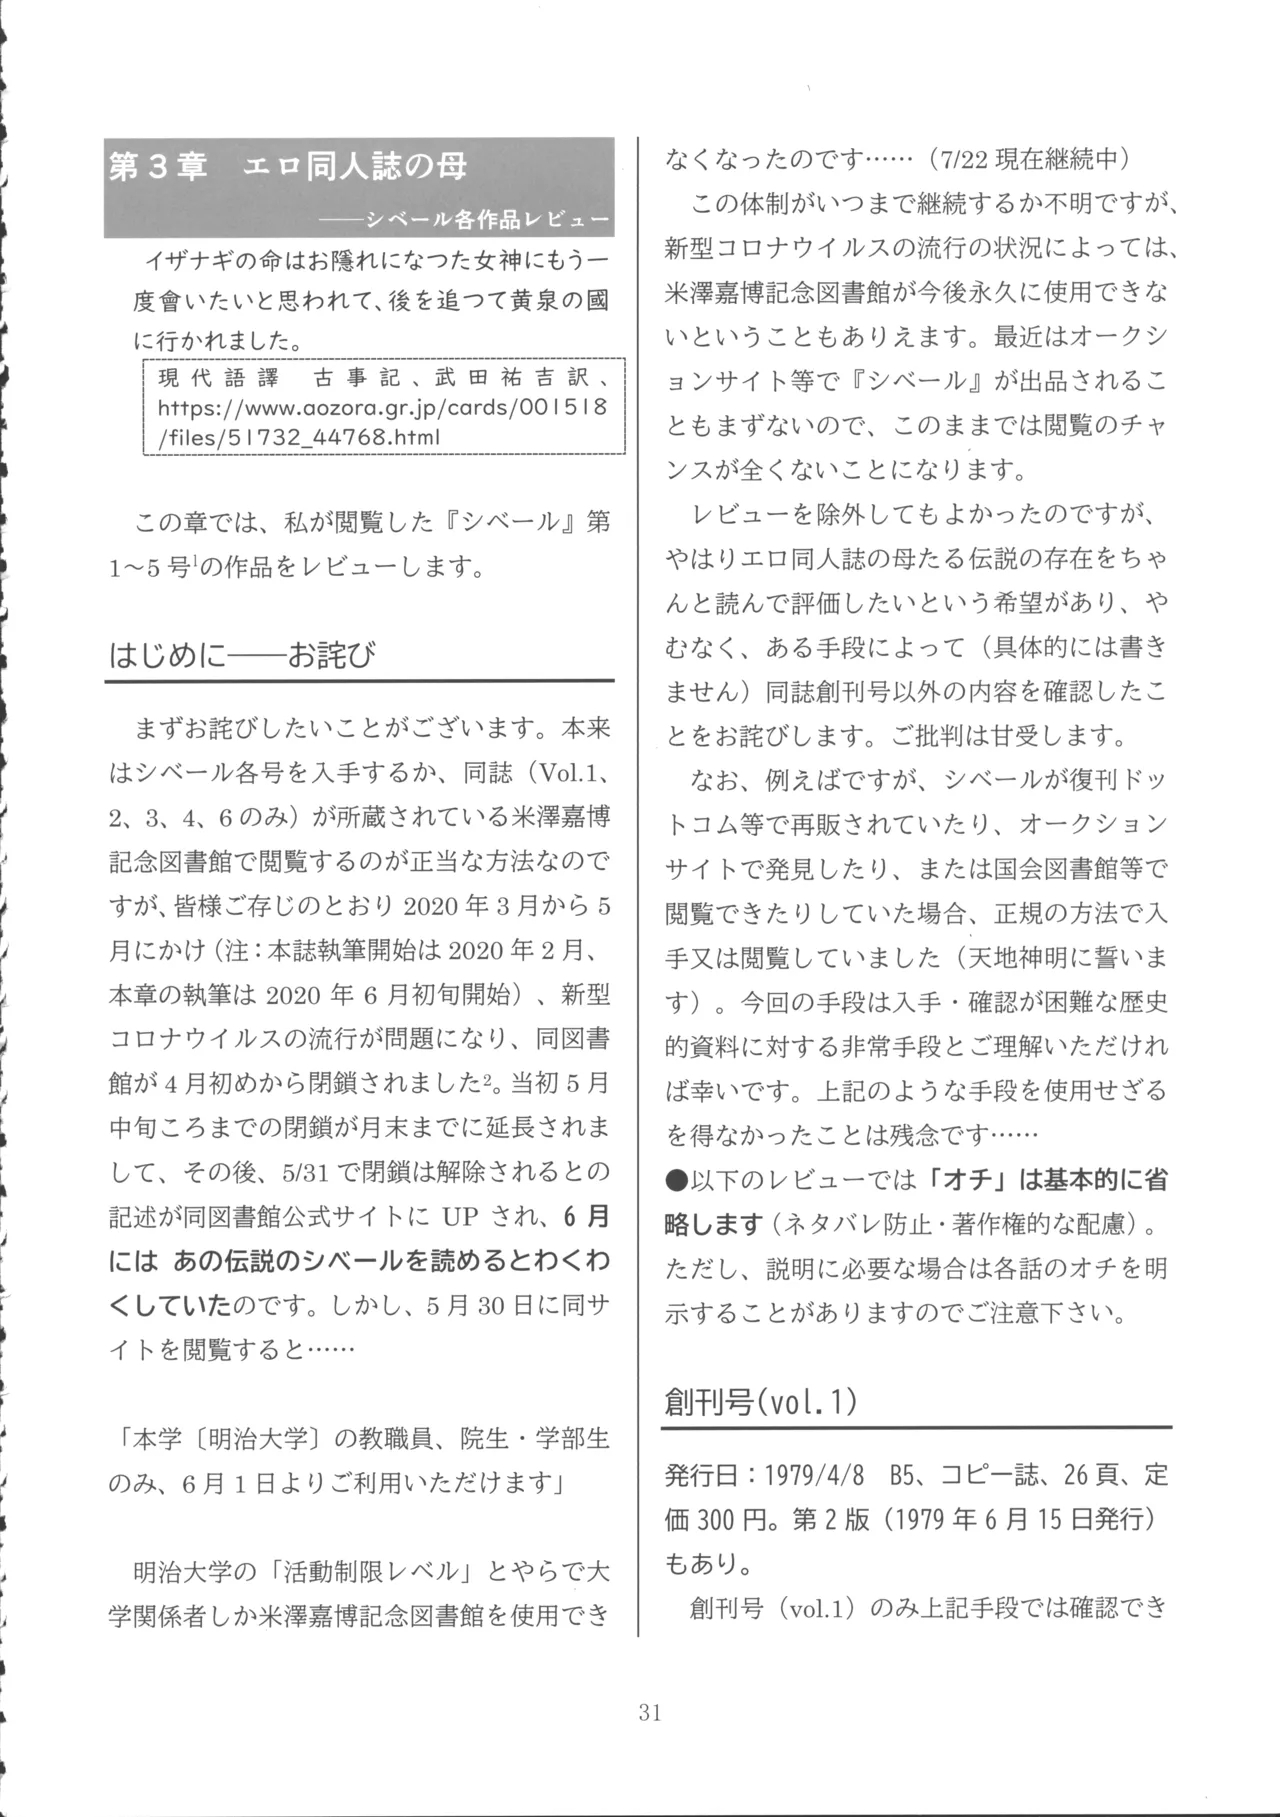 第3章　エロ同人誌の母
――シベール各作品レビュー
イザナギの命はお隱れになつた女神にもう一
度會いたいと思われて、後を追つて黄泉の國
に行かれました。
現代語譯　古事記、武田祐吉訳、
https://www.aozora.gr.jp/cards/001518
/files/51732_44768.html
この章では、私が閲覧した『シベール』第
1～5号1の作品をレビューします。
はじめに――お詫び
まずお詫びしたいことがございます。本来
はシベール各号を入手するか、同誌（Vol.1、
2、3、4、6のみ）が所蔵されている米澤嘉博
記念図書館で閲覧するのが正当な方法なので
すが、皆様ご存じのとおり2020年3月から5
月にかけ（注：本誌執筆開始は2020年2月、
本章の執筆は2020年6月初旬開始）、新型
コロナウイルスの流行が問題になり、同図書
館が4月初めから閉鎖されました2。当初5月
中旬ころまでの閉鎖が月末までに延長されま
して、その後、5/31で閉鎖は解除されるとの
記述が同図書館公式サイトにUPされ、6月
には あの伝説のシベールを読めるとわくわ
くしていたのです。しかし、5月30日に同サ
イトを閲覧すると……
「本学〔明治大学〕の教職員、院生・学部生
のみ、6月1日よりご利用いただけます」
明治大学の「活動制限レベル」とやらで大
学関係者しか米澤嘉博記念図書館を使用でき
なくなったのです……（7/22現在継続中）
この体制がいつまで継続するか不明ですが、
新型コロナウイルスの流行の状況によっては、
米澤嘉博記念図書館が今後永久に使用できな
いということもありえます。最近はオークシ
ョンサイト等で『シベール』が出品されるこ
ともまずないので、このままでは閲覧のチャ
ンスが全くないことになります。
レビューを除外してもよかったのですが、
やはりエロ同人誌の母たる伝説の存在をちゃ
んと読んで評価したいという希望があり、や
むなく、ある手段によって（具体的には書き
ません）同誌創刊号以外の内容を確認したこ
とをお詫びします。ご批判は甘受します。
なお、例えばですが、シベールが復刊ドッ
トコム等で再販されていたり、オークション
サイトで発見したり、または国会図書館等で
閲覧できたりしていた場合、正規の方法で入
手又は閲覧していました（天地神明に誓いま
す）。今回の手段は入手・確認が困難な歴史
的資料に対する非常手段とご理解いただけれ
ば幸いです。上記のような手段を使用せざる
を得なかったことは残念です……
●以下のレビューでは「オチ」は基本的に省
略します（ネタバレ防止・著作権的な配慮）。
ただし、説明に必要な場合は各話のオチを明
示することがありますのでご注意下さい。
創刊号(vol.1)
発行日：1979/4/8　B5、コピー誌、26頁、定
価300円。第2版（1979年6月15日発行）
もあり。
創刊号（vol.1）のみ上記手段では確認でき
31